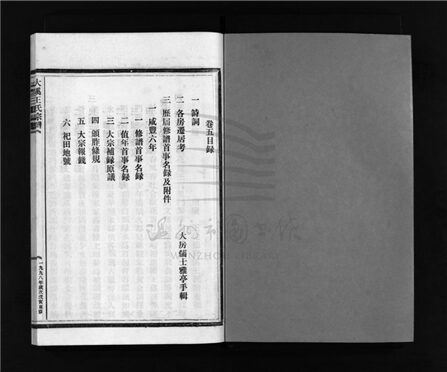 卷五目録
一 詩詞
二 各房遷居考
三 歷屆修譜首事名録及附件
一 咸豐六年
大房儒士雅亭手輯
一 修譜首事名録
二 值年首事名録
三 大宗補録原議
四 頒胙條規
五 大宗報銷
六 祀田地號
王氏宗譜
一九九八年歲次戊寅重修
WENZHOU LIBRARY